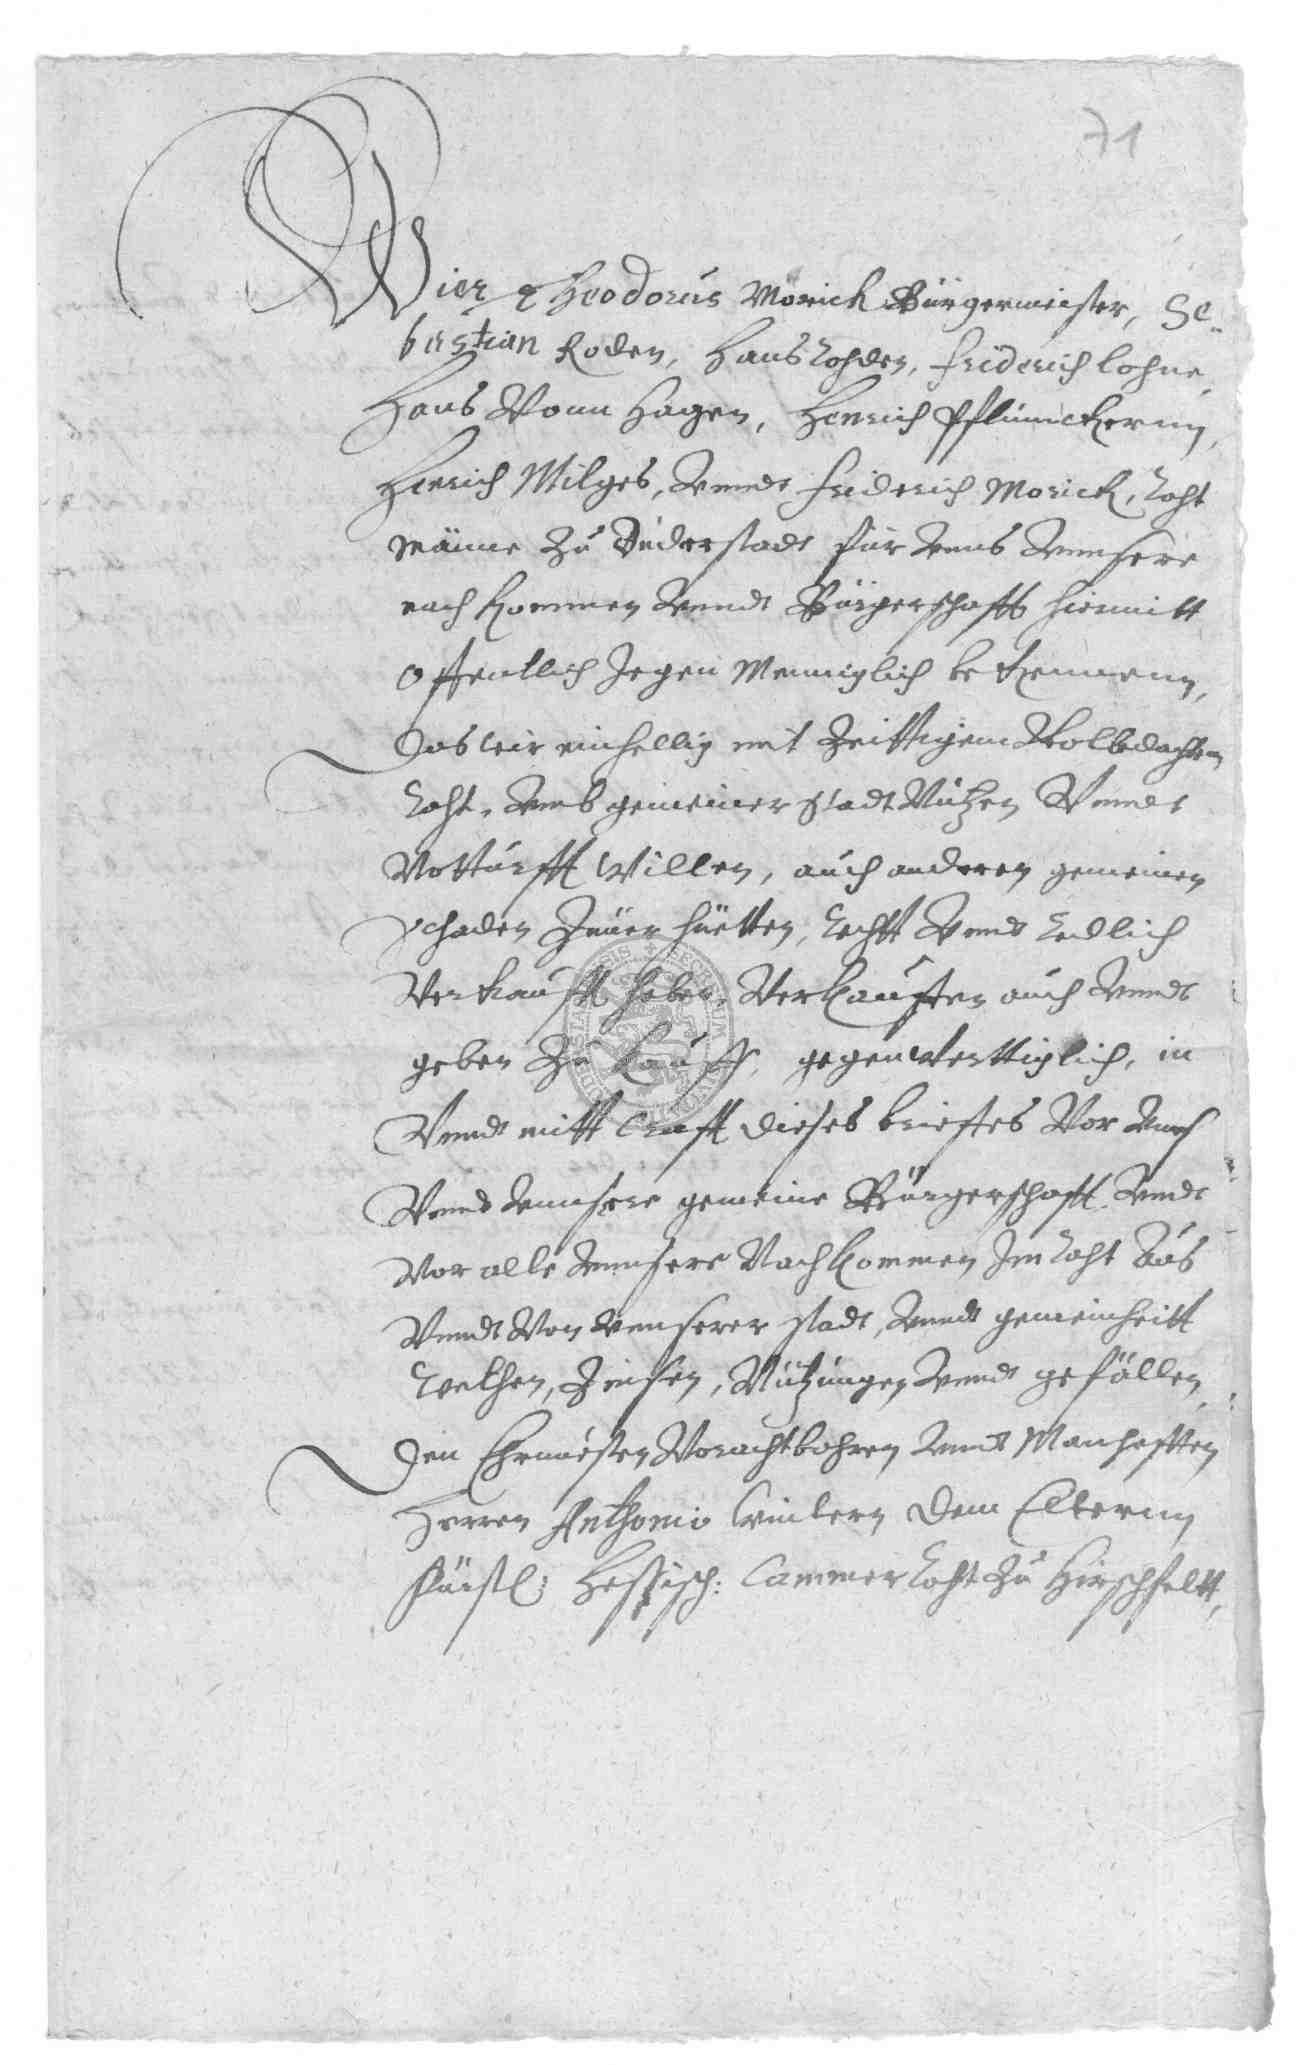 71
Wier Theodorus Morick Bürgermeister, Se-
bastian Roden, Hans Rohden, Friderich Lohne,
Hans Vonn Hagen, Henrich Pflünickernn,
Henrich Milges, Vnndt Friderich Morick, Raht
Männe zu Duderstadt für Vnns Vnnsere
nach kommen Vnndt Bürgerschafft hiermitt
offentlich Jegen Menniglich bekennenn,
Das wir einhellig mit Zeittigem Wolbedachtem
Raht, Vmb gemeiner Stadt Nützen Vnndt
Notturfft Willen, auch anderen gemeinen
Schaden Zuuer hüetten, Recht Vnndt Redlich
Verkaufft haben, Verkauffen auch Vnndt
geben Zu Kauff, gegenwerttiglich, in
Vnndt mitt Crafft dieses brieffes Vor Vnns
Vnndt Vnnsere gemeine Bürgerschafft Vnndt
Vor alle Vnnsere Nachkommen Im Raht Aus
Vnndt Von Vnnserer Stadt, Vnndt gemeinheitt
Renthen, Zinsen, Nützungen Vnndt gefällen,
Den Ehrnuesten Vorachtbahren Vnndt Manhafften
Herren Anthonio Winlern Dem Elternn
Fürstl: Hessisch: Cammer Raht zu Hirschfeltt,